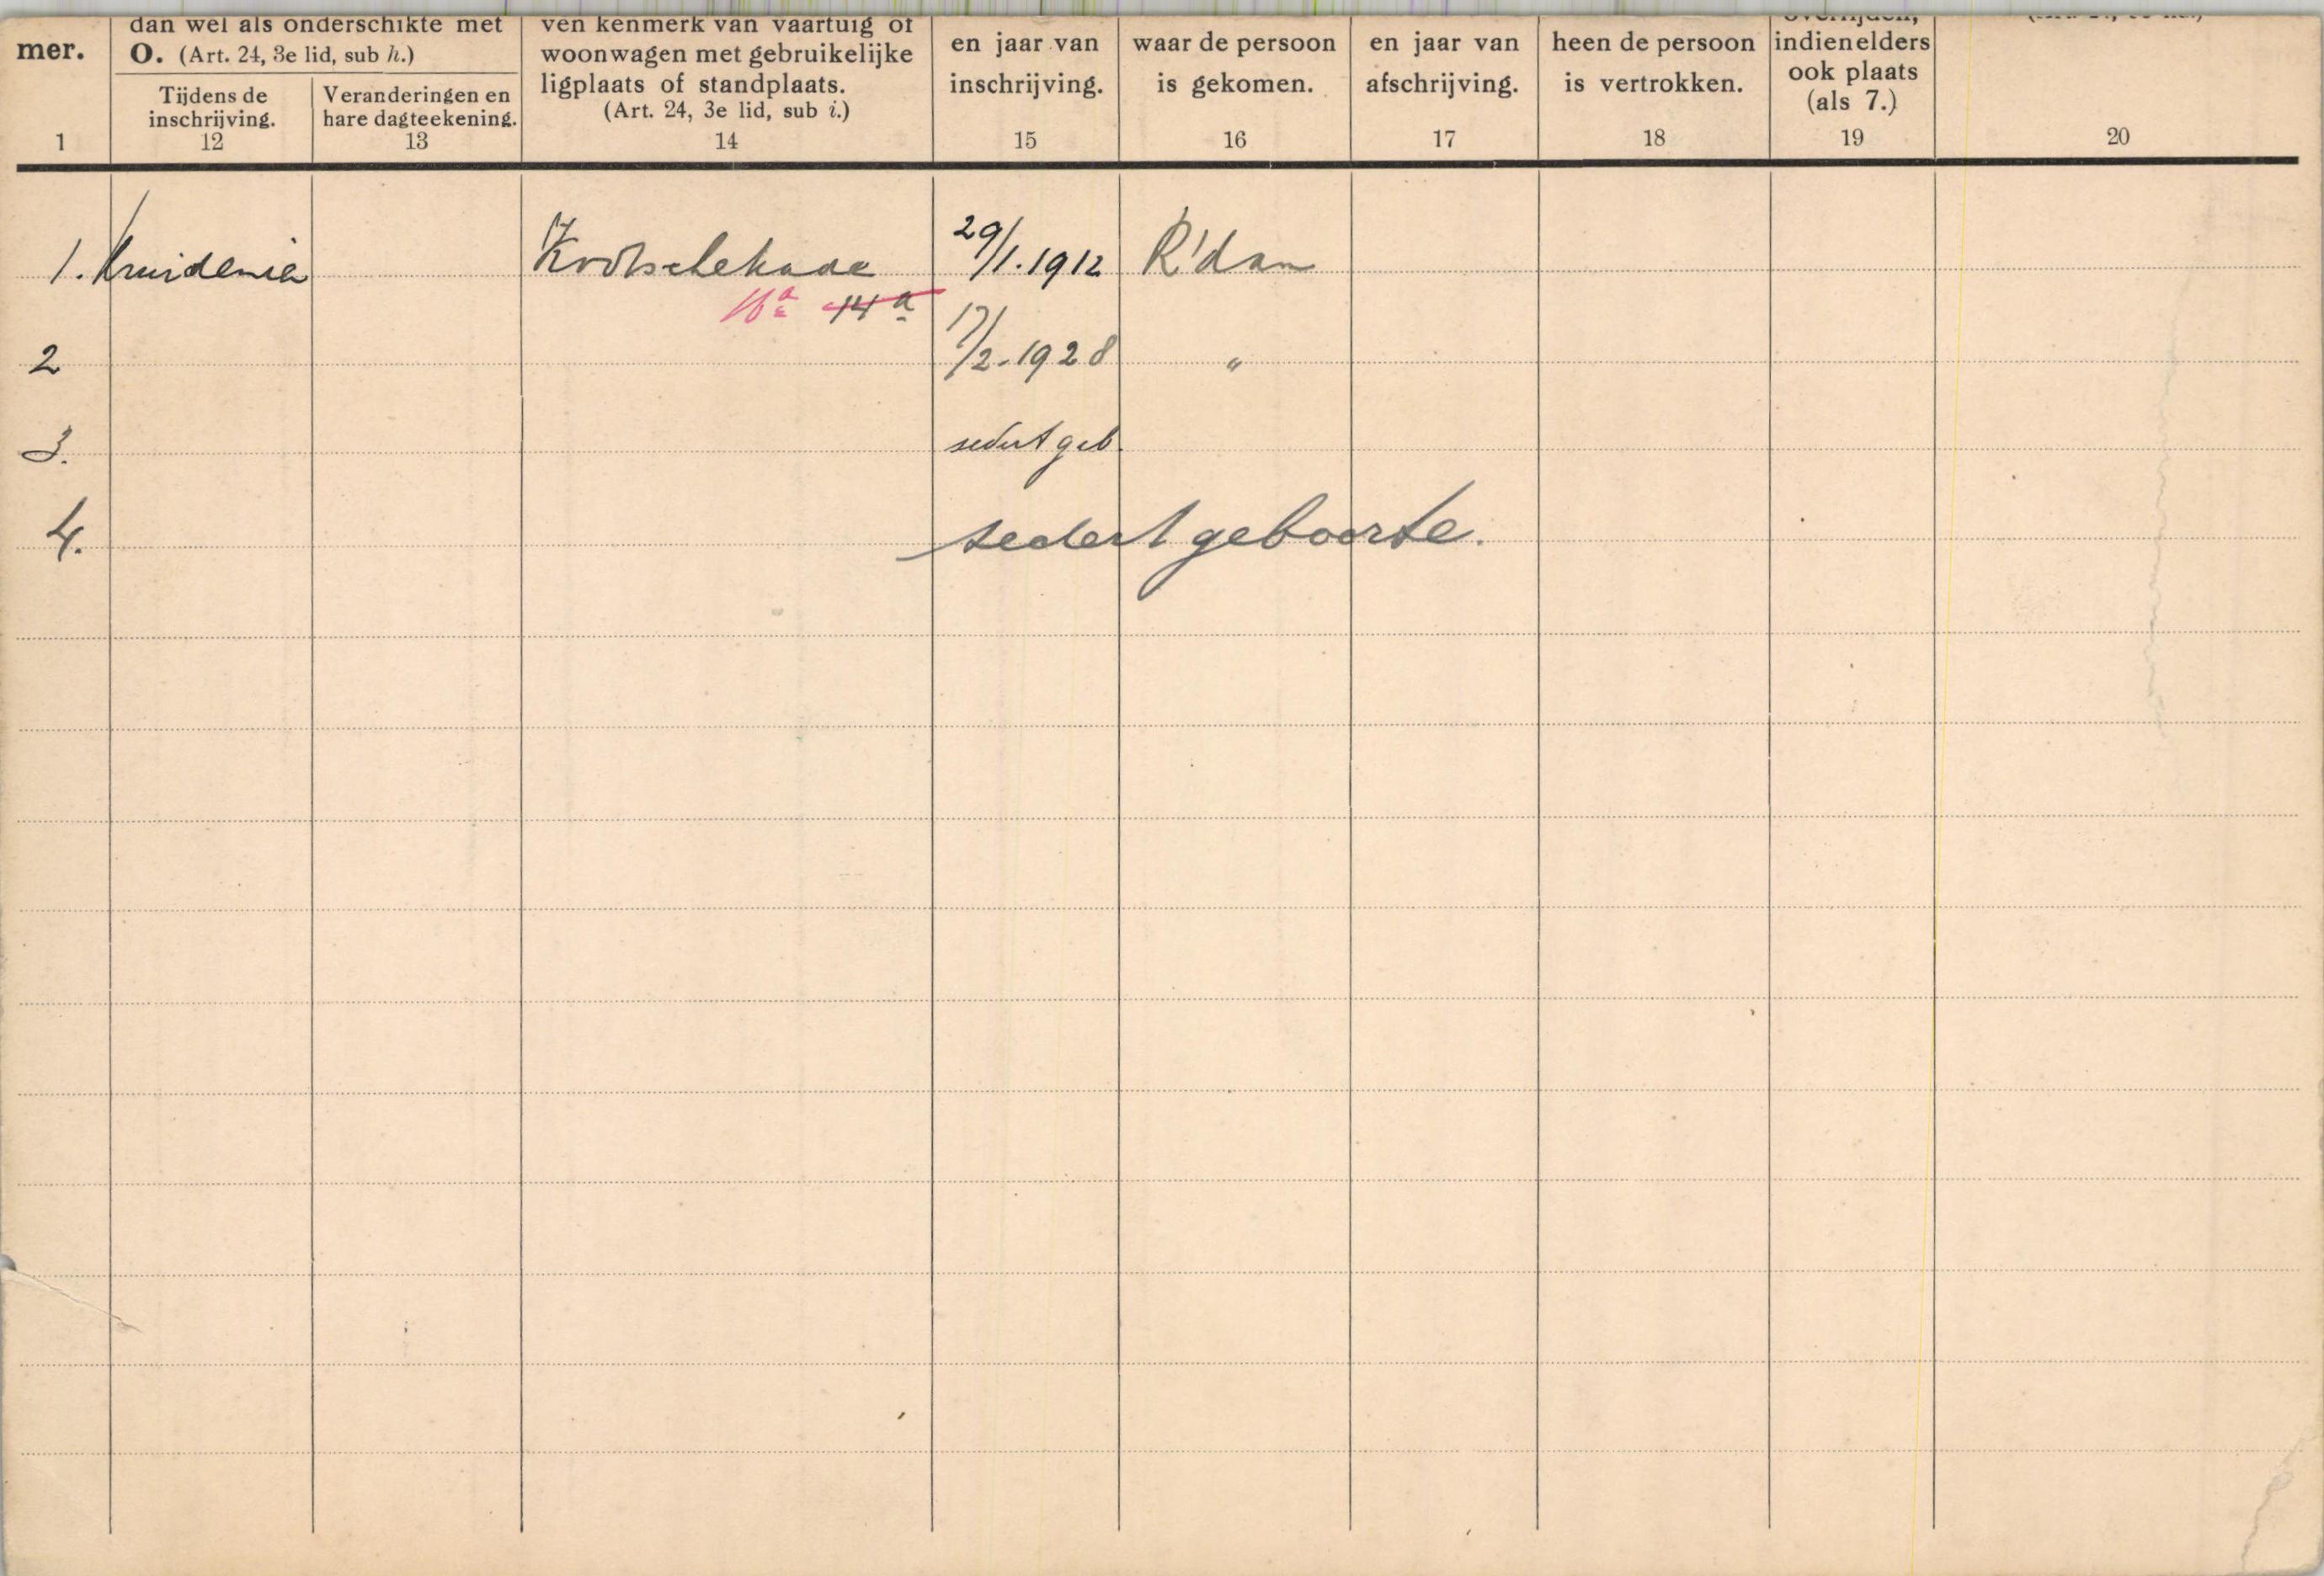 mer.
dan wel als onderschikte met
O. (Art. 24, 3e lid, sub h.)
Tijdens de
inschrijving.
Veranderingen en
hare dagteekening.
ven kenmerk van vaartuig of
woonwagen met gebruikelijke
ligplaats of standplaats.
(Art. 24, 3e lid, sub i.)
en jaar van
inschrijving.
waar de persoon
is gekomen.
en jaar van
afschrijving.
heen de persoon
is vertrokken.
overlijden,
indien elders
ook plaats
(als 7.)
1 12 13 14 15 16 17 18 19 20
1. Kruidenier 29/1.1912 R'dam
16a 14a
2 17/2.1928 "
3. sedert geb.
4. sedert geboorte.